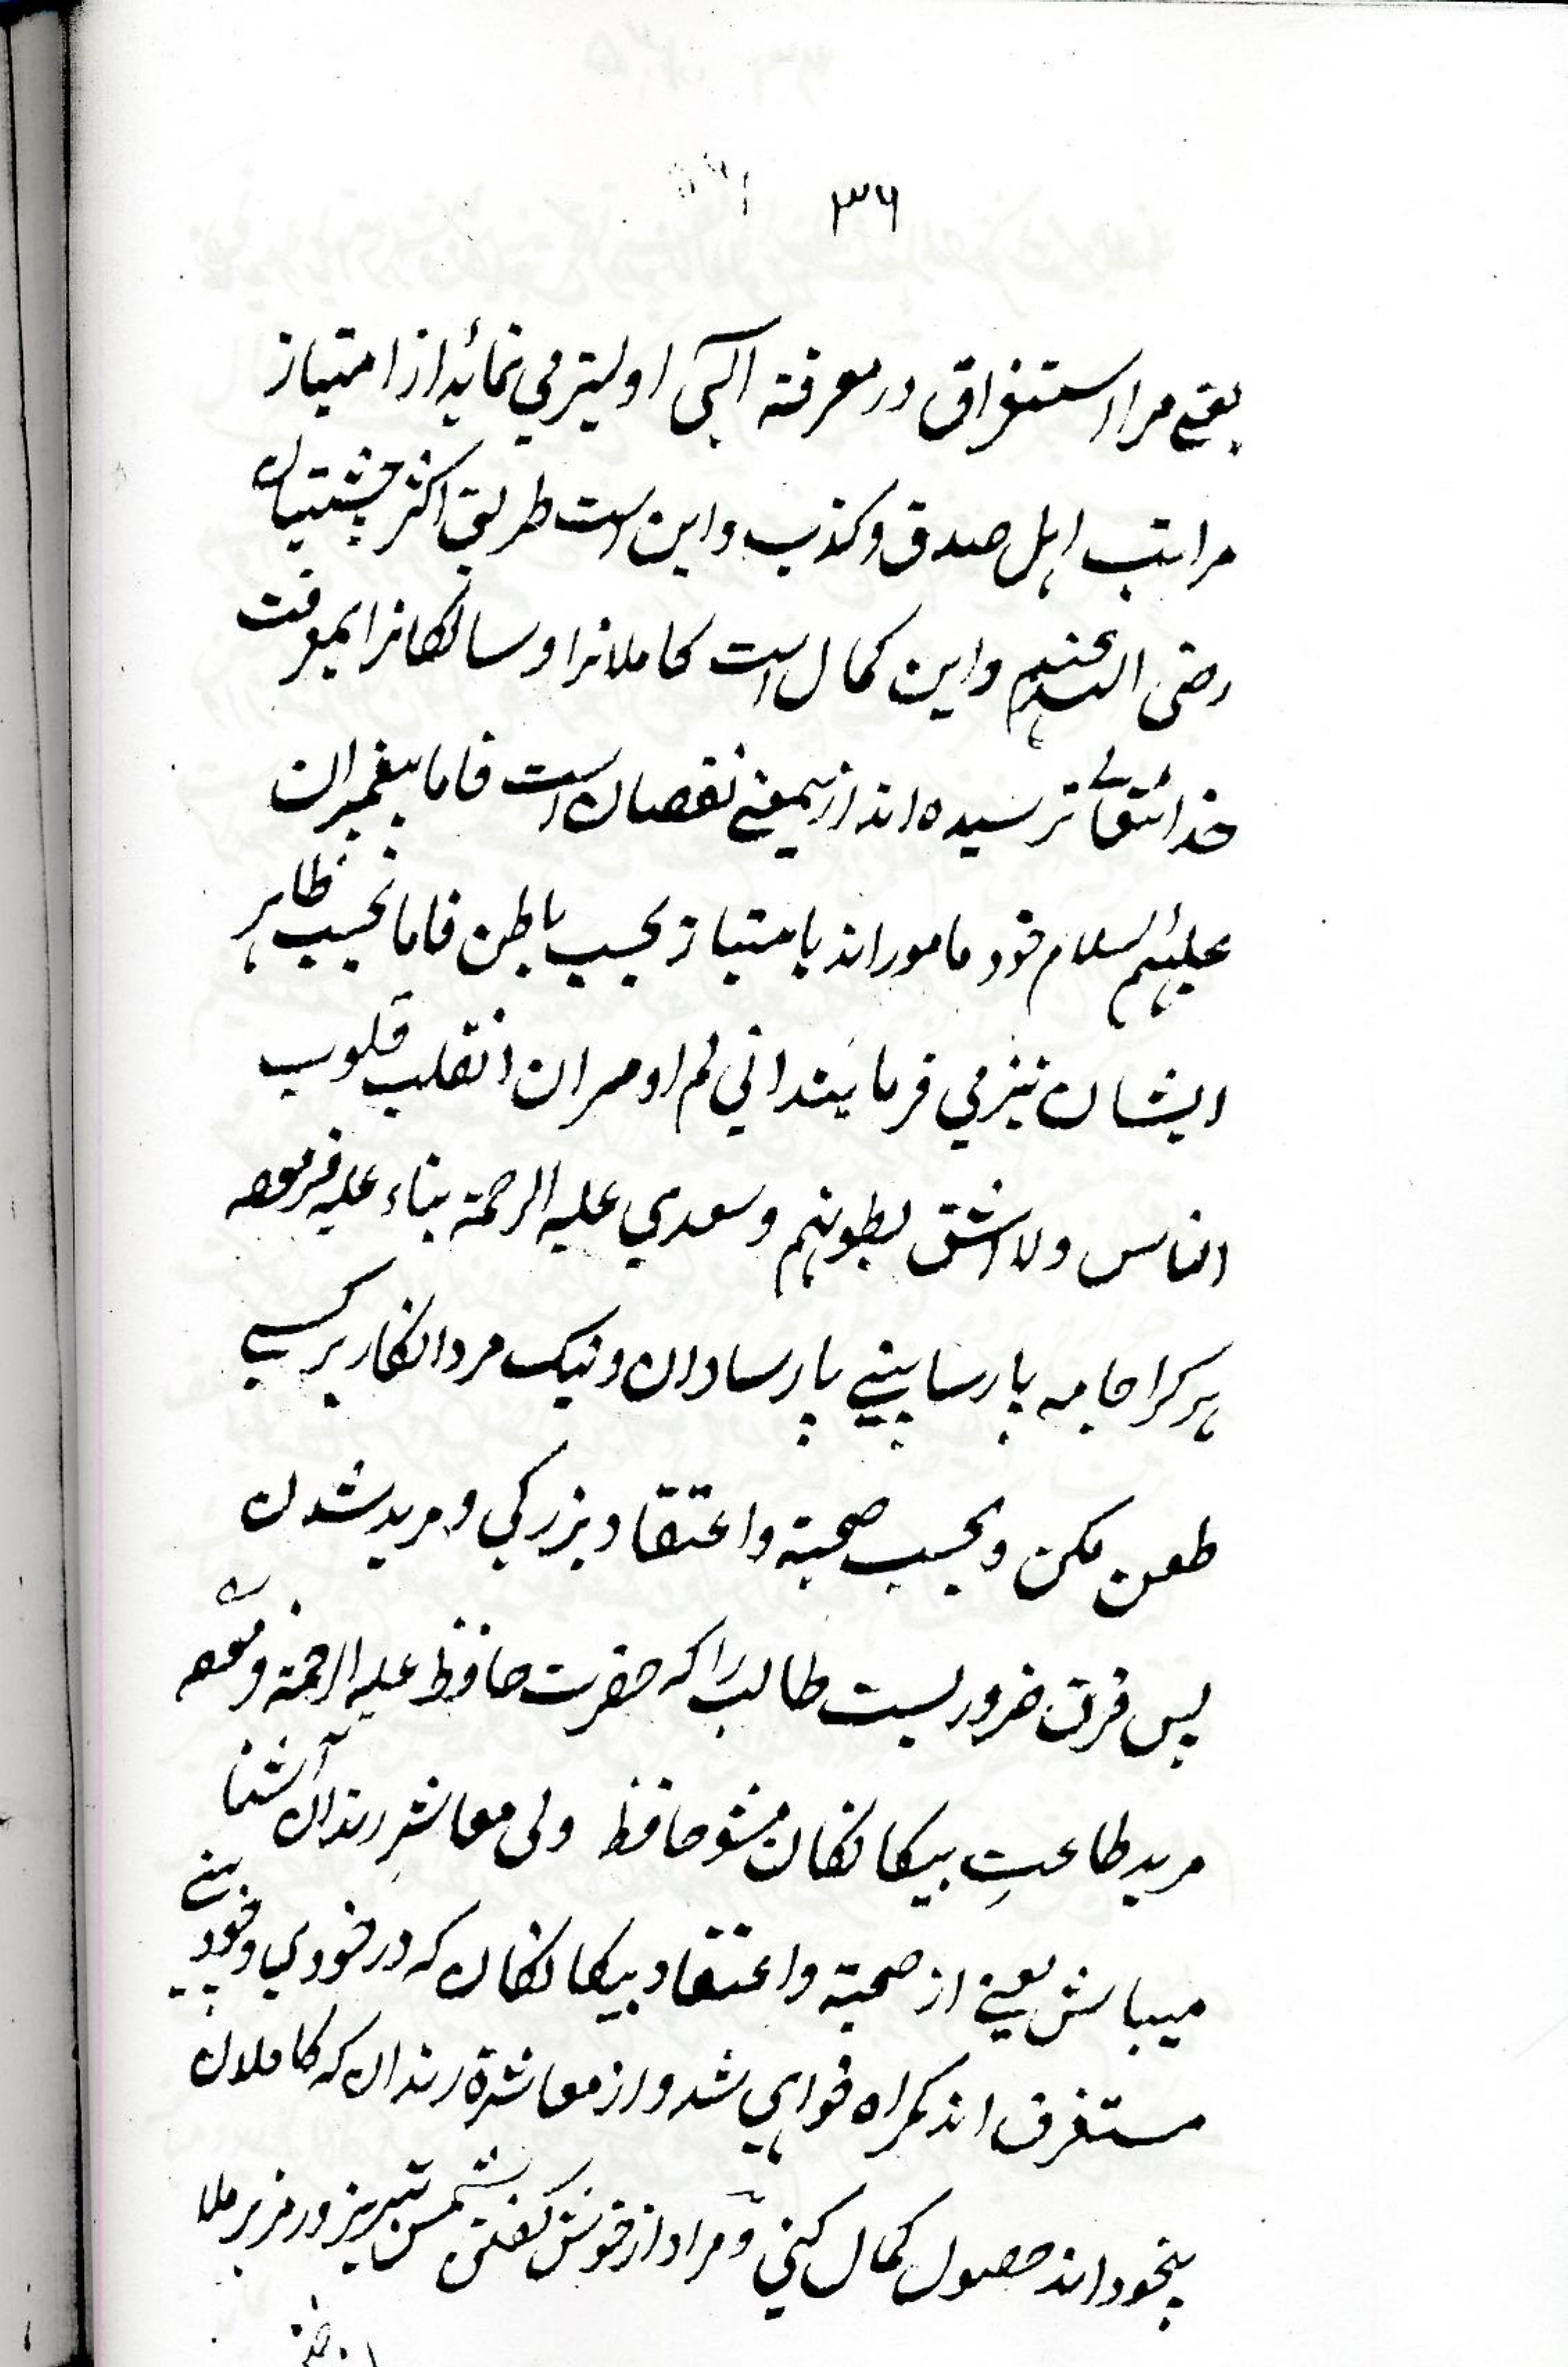 ۳۶
یعنے مرا استغراق در معرفتہ الہی اولیتر می نماید از امتیاز
مراتب اہل صدق و کذب و این است طریق اکثر چشتیان
رضی اللہ عنہم و این کمال است کاملانرا و سالکانرا بمعرفت
خدائتعالے نرسیدہ اند ازینمعنے نقصان است فاما پیغمبران
علیہم السلام خود مامور اند بامتیاز بحسب باطن فاما بحسب ظاہر
ایشان نیز می فرمایند انی لم اومر ان انقلب قلوب
الناس ولا اشق بطونہم و سعدی علیہ الرحمۃ بناء علیہ فرمودہ
ہر کرا جامہ پارسا بینے پارسا دان و نیک مرد انکار بر کسے
طعن مکن و بحسب صحبتہ و اعتقاد بزرکی و مرید شدن
پس فرق ضروریست طالب را کہ حضرت حافظ علیہ الرحمۃ فرمودہ
مرید طاعتِ بیکانکان مشو حافظ ولی معاشرِ رندان آشنا
میباش یعنے از صحبتہ و اعتقاد بیکانکان کہ در خودی و خود بینے
مستغرق اند کمراہ خواہی شد و از معاشرۃ رندان کہ کاملان
بیخود اند حصول کمال کنی و مراد از خوش کفتن شمس تبریز و رمز بر ملا